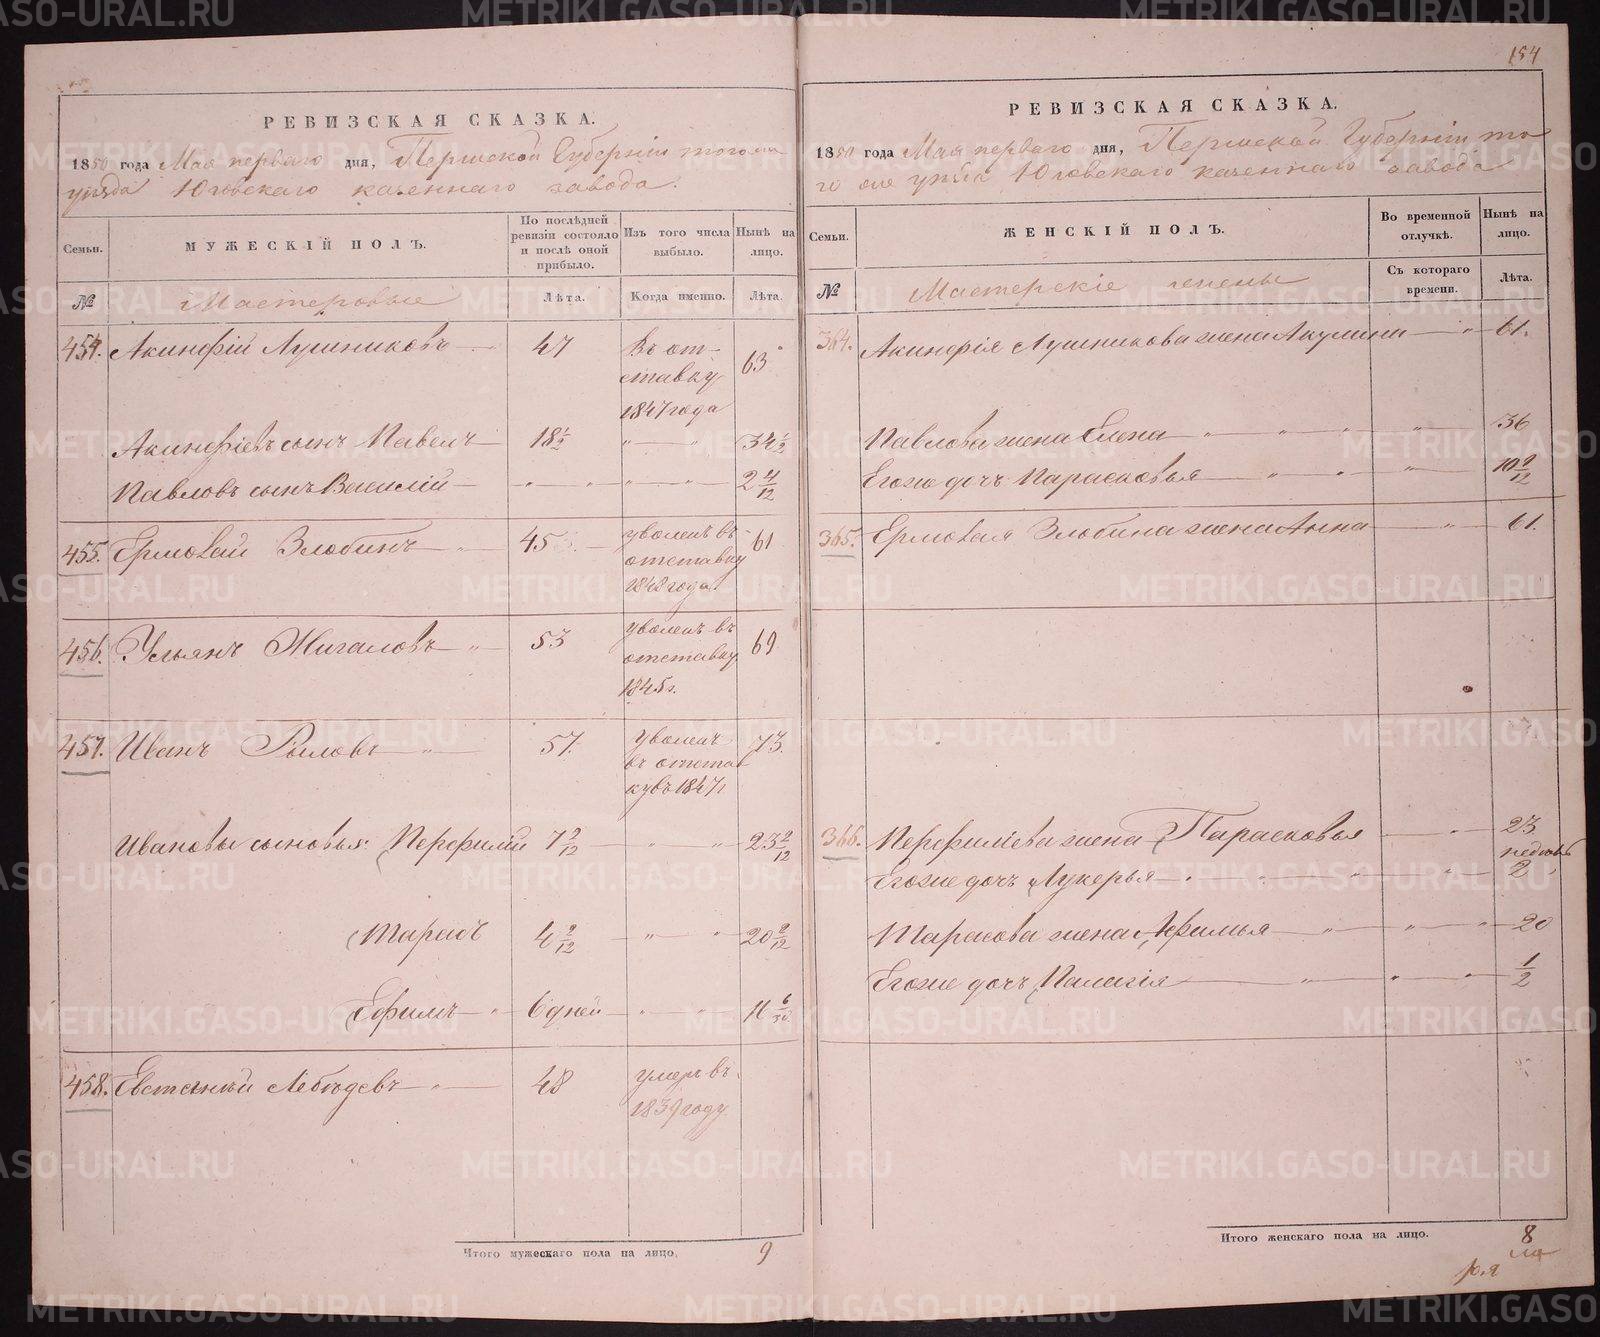 154
РЕВИЗСКАЯ СКАЗКА.
1850 года Мая перваго дня, Пермской Губерніи того же
уѣзда Юговскаго казеннаго завода.
Семьи.
МУЖЕСКІЙ ПОЛЪ.
По послѣдней
ревизіи состояло
и послѣ оной
прибыло.
Изъ того числа
выбыло.
Нынѣ на
лицо.
№
Мастеровые
Лѣта.
Когда именно.
Лѣта.
454. Акинфій Лушниковъ 47 Въ от-
ставку 63
1847 года
Акинфіевъ сынъ Павелъ 18 1/2 " " 34 1/2
Павловъ сынъ Василій " " " " " 2 4/12
455. Ермолай Злобинъ " 45 уволенъ въ 61
отставку
1848 года
456. Ульянъ Жигаловъ " 53 уволенъ въ 69
отставку
1845 г.
457. Иванъ Рыловъ " 57. уволенъ 73.
въ отстав
ку въ 1847 г
Ивановы сыновья: Перфилій 7 2/12 " " 23 2/12
Тарасъ 4 2/12 " " 20 2/12
Ефимъ " 6 дней " " 16 6/30
458. Евстафій Лебедевъ " 48 умеръ въ
1839 году
Итого мужескаго пола на лицо, 9
РЕВИЗСКАЯ СКАЗКА.
1850 года Мая перваго дня, Пермской Губерніи то
го же уѣзда Юговскаго казеннаго завода
Семьи.
ЖЕНСКІЙ ПОЛЪ.
Во временной
отлучкѣ.
Нынѣ на
лицо.
№
Мастерскіе жены
Съ котораго
времени.
Лѣта.
364. Акинфія Лушникова жена Акулина " 61.
Павлова жена Елена " " " " 36
Его же дочь Парасковья " " " 10 9/12
365. Ермолая Злобина жена Анна " 61.
366. Перфиліева жена Парасковья " 23
недель
Его же дочь Лукерья " " " " 2
Тарасова жена Афимья " " " 20
Его же дочь Палагія " " " 1/2
Итого женскаго пола на лицо. 8